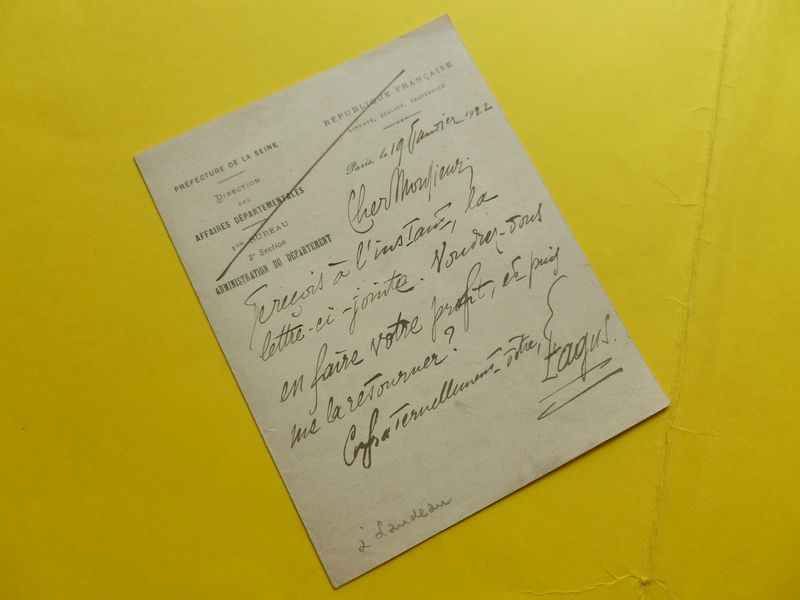 RÉPUBLIQUE FRANÇAISE
LIBERTÉ, ÉGALITÉ, FRATERNITÉ
PRÉFECTURE DE LA SEINE
DIRECTION
DES
AFFAIRES DÉPARTEMENTALES
1er BUREAU
2e Section
ADMINISTRATION DU DÉPARTEMENT
Paris, le 19 Janvier 1922
Cher Monsieur,
Je reçois à l'instant, la
lettre-ci-jointe. Voudrez-vous
en faire votre profit, et puis
me la retourner?
Confraternellement vôtre,
Fagus.
à Landeau